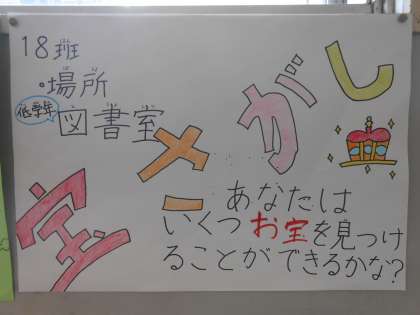 18班
・場所
低学年
図書室
宝さがし
あなたは
いくつお宝を見つけ
ることができるかな?